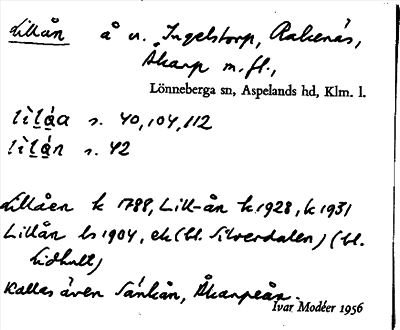 Lillån å n. Ingelstorp, Rakenäs,
Åkarp m.fl.,
Lönneberga sn, Aspelands hd, Klm. l.
lìlǻa s. 40, 104, 112
lìlǻn s. 42
Lillåen k 1788, Lill-ån k 1928, k 1931
Lillån ls 1904, ek (bl. Silverdalen) (bl.
Lidhult)
Kallas även Sänkån, Åkarpeån.
Ivar Modéer 1956